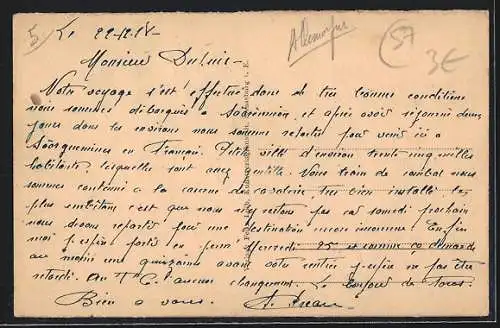 5
Allemagne
57
3€
Le 22-12-18-
Monsieur
Votre voyage s'est effectué dans de très bonnes conditions
nous sommes débarqués à et après avoir séjourné deux
jours dans les environs nous sommes repartis pour venir ici à
Sarreguemines en Français. Petite ville d'environ trente cinq milles
habitants, lesquelles sont assez gentils. Notre train de combat nous
sommes cantonné à la caserne de cavalerie, très bien installé, le
plus embêtant c'est que nous n'y restons pas car samedi prochain
nous devons repartir pour une destination encore inconnue. Enfin
moi j'espère partir en perm Mercredi 25 et comme ça demande
au moins une quinzaine avant votre rentrée j'espère ne pas être
retardé. Au aucun changement. Le bonjour de tous.
Bien à vous.